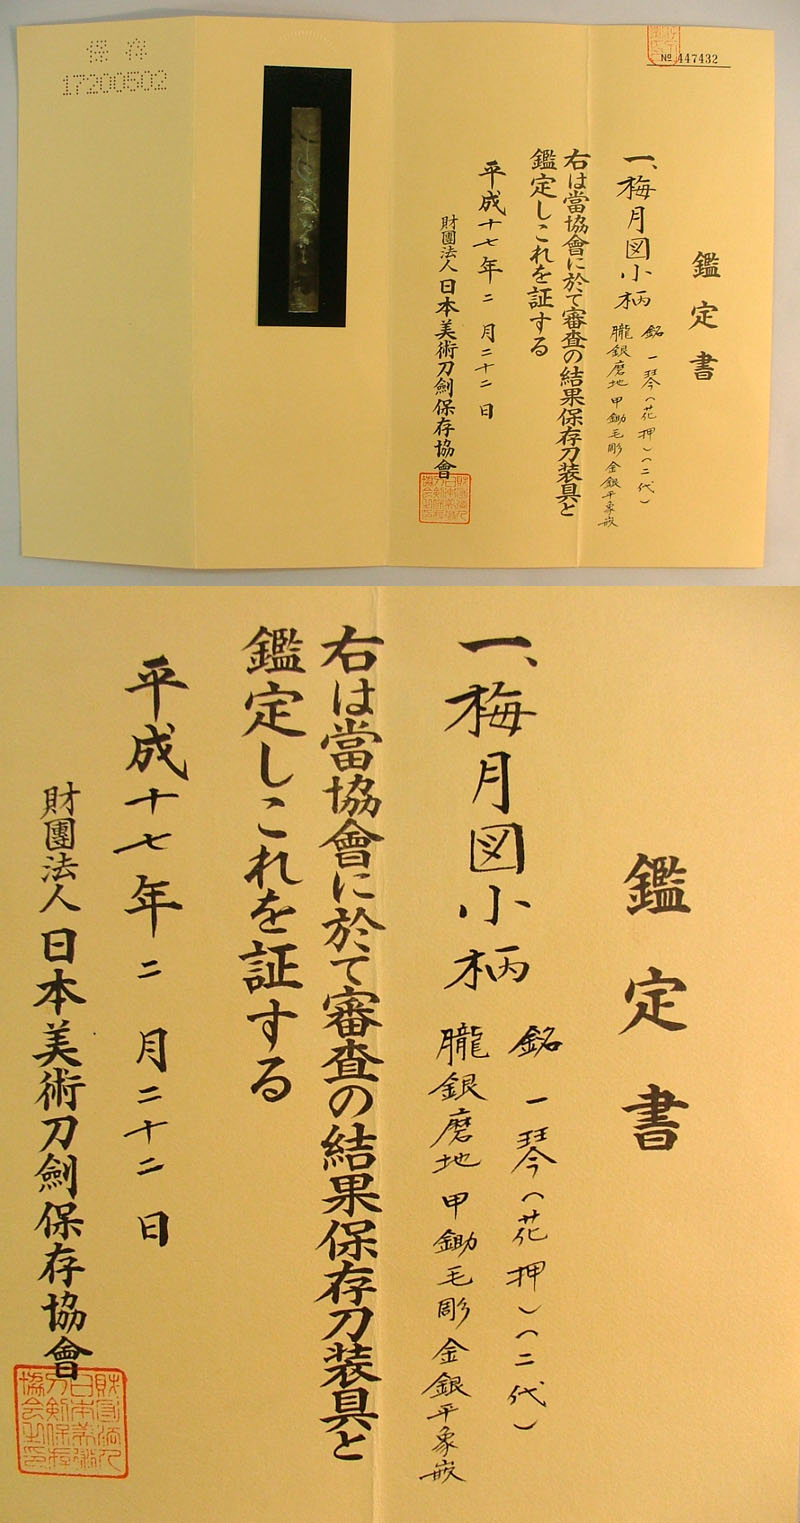 保存
17200502
№ 447432
鑑定書
一、梅月図小柄
銘 一琴(花押)(二代)
朧銀磨地 甲鋤毛彫金銀平象嵌
右は當協會に於て審査の結果保存刀装具と
鑑定しこれを証する
平成十七年二月二十二日
財團法人日本美術刀劍保存協會
鑑定書
一、梅月図小柄
銘 一琴(花押)(二代)
朧銀磨地 甲鋤毛彫金銀平象嵌
右は當協會に於て審査の結果保存刀装具と
鑑定しこれを証する
平成十七年二月二十二日
財團法人日本美術刀劍保存協會